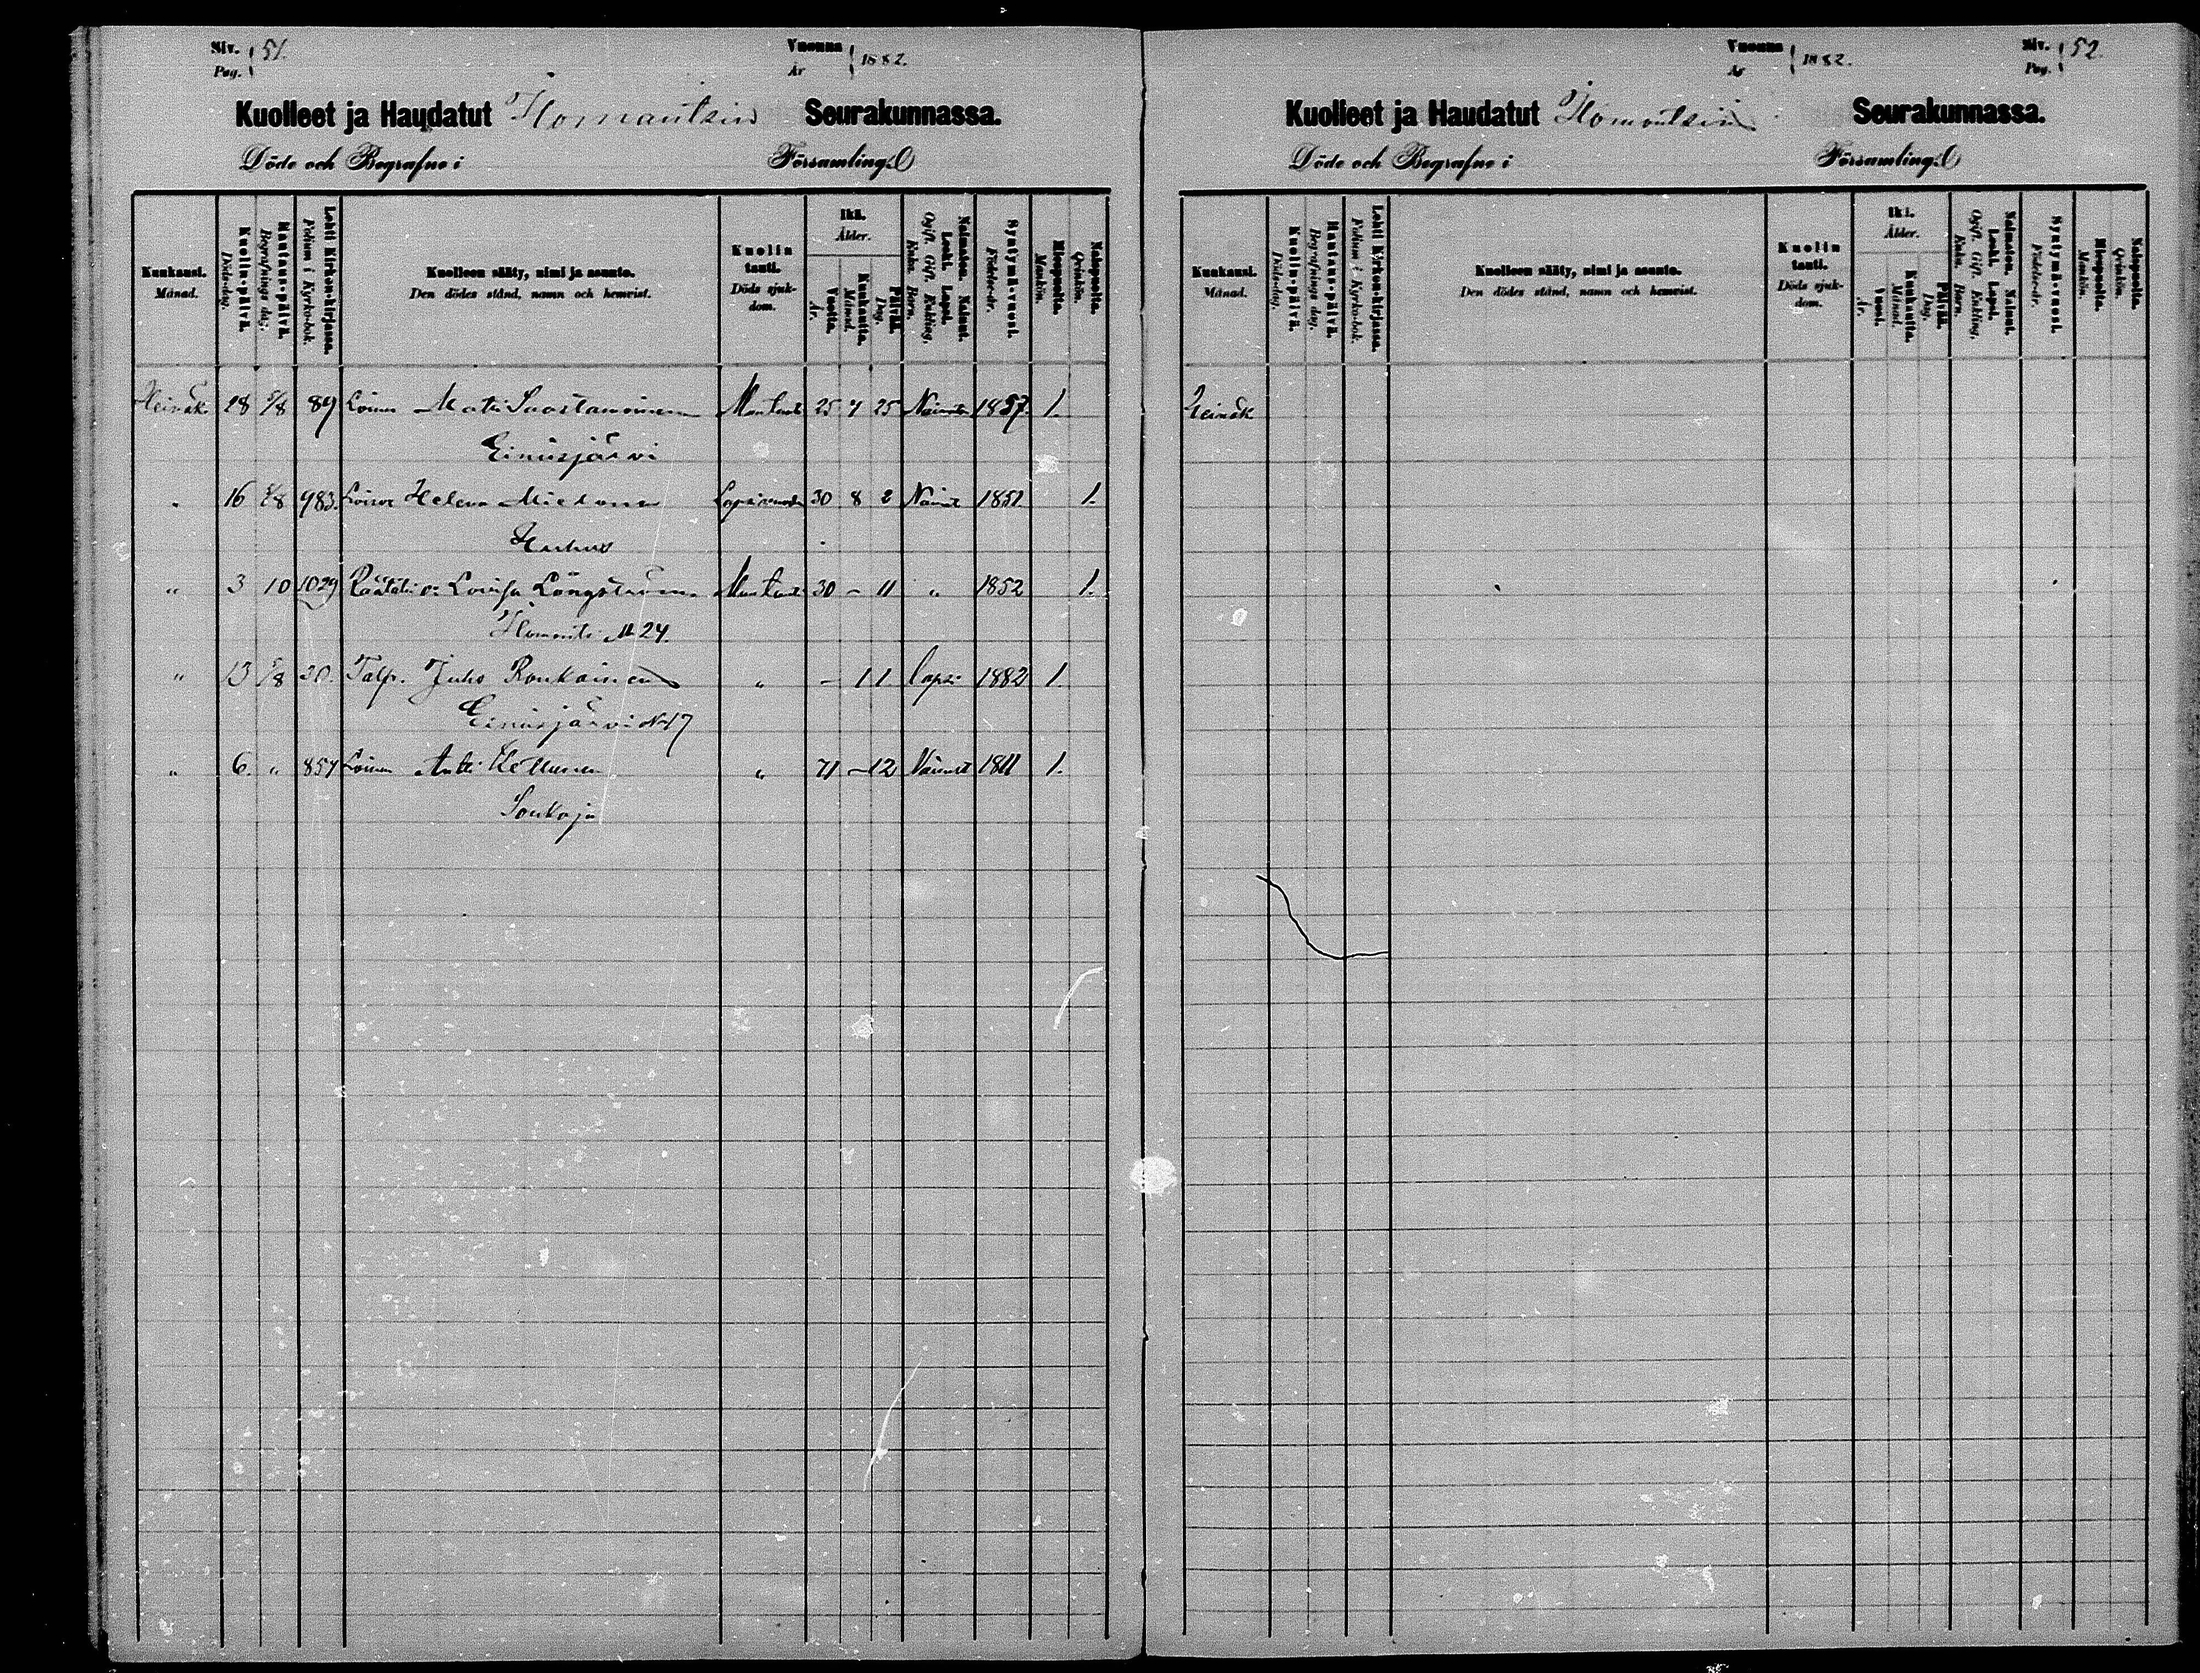 Siv. Pag. 51.
Vuonna År 1882.
Kuolleet ja Haudatut Ilomantsin Seurakunnassa.
Döde och Begrafne i Församling.
Kuukausi. Månad.
Kuolin-päivä. Döds-dag.
Hautaus-päivä. Begrafnings dag.
Lehti Kirkon-kirjassa. Folium i Kyrko-bok.
Kuolleen sääty, nimi ja asunto.
Den dödes stånd, namn och hemvist.
Kuolin tauti. Döds sjukdom.
Ikä. Ålder.
Vuotta. År.
Kuukautta. Månad.
Päivää. Dag.
Naimaton. Nainut. Leski. Lapsi.
Ogift. Gift. Enkling. Enka. Barn.
Syntymä-vuosi. Födelse-år.
Miespuolta. Mankön.
Naispuolta. Qvinkön.
Heinäk. 18 5/8 89 Loinen Matti Suostamoinen 25 4 25 1857. 1.
Einusjärvi
16 983. Helena 30 8 2 Nainut 1851. 1.
" 3 10 1029 Räätälin v: Lovisa Långström 30 - 11 " 1852 1.
Ilomants № 24.
" 13 5/8 30. Talp. Juho Ronkainen " - 1 1 lapsi 1882 1.
Einusjärvi № 17
" 6. " 857 Loinen Antti " 71 - 12 1811 1.
Sonkaja
Vuonna År 1882.
Siv. Pag. 52.
Kuolleet ja Haudatut Ilomantsin Seurakunnassa.
Döde och Begrafne i Församling.
Kuukausi. Månad.
Kuolin-päivä. Döds-dag.
Hautaus-päivä. Begrafnings dag.
Lehti Kirkon-kirjassa. Folium i Kyrko-bok.
Kuolleen sääty, nimi ja asunto.
Den dödes stånd, namn och hemvist.
Kuolin tauti. Döds sjukdom.
Ikä. Ålder.
Vuosi. År.
Kuukautta. Månad.
Päivää. Dag.
Naimaton. Nainut. Leski. Lapsi.
Ogift. Gift. Enkling. Enka. Barn.
Syntymä-vuosi. Födelse-år.
Miespuolta. Mankön.
Naispuolta. Qvinkön.
Heinäk